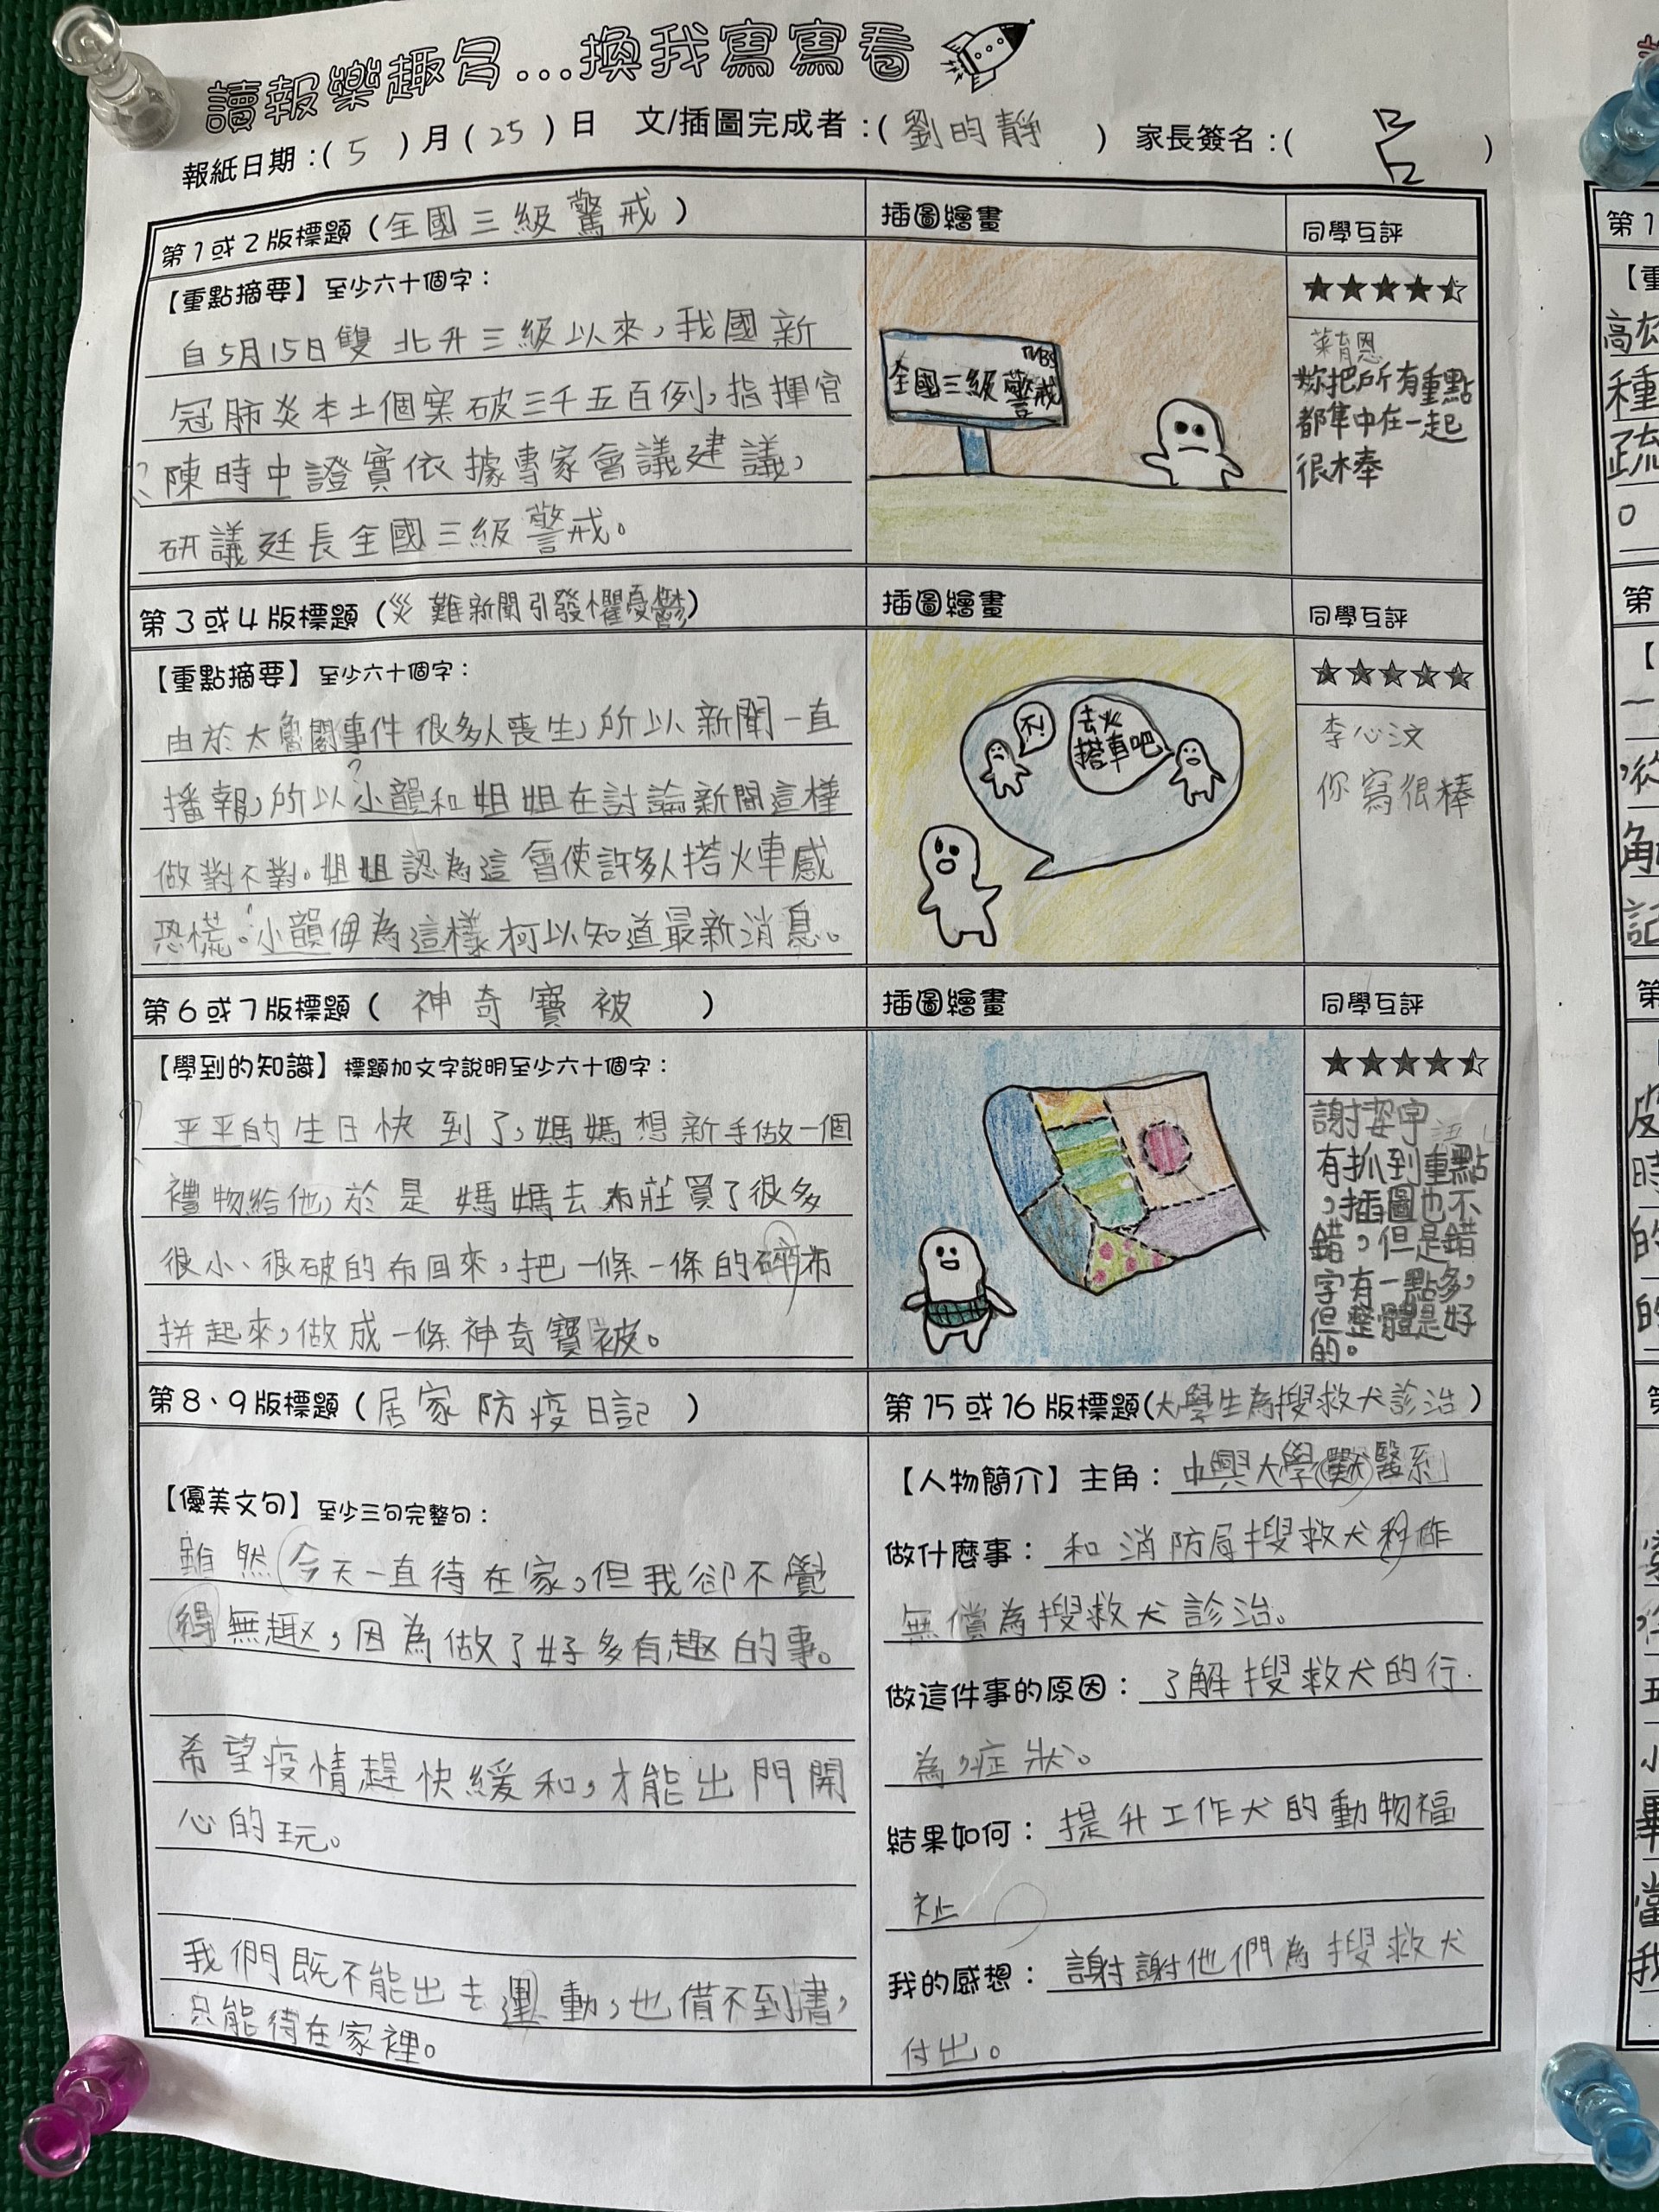 讀報樂趣多...換我寫寫看
報紙日期：( 5 )月( 25 )日 文/插圖完成者：( 劉昀靜 ) 家長簽名：( )
第1或2版標題(全國三級驚戒)
插圖繪畫
同學互評
【重點摘要】至少六十個字：
自5月15日雙北升三級以來，我國新
冠肺炎本土個案破三千五百例，指揮官
陳時中證實依據專家會議建議，
研議延長全國三級警戒。
TVBS
全國三級警戒
★★★★⯪
葉育恩
妳把所有重點
都集中在一起
很棒
第3或4版標題(災難新聞引發懼憂鬱)
插圖繪畫
同學互評
【重點摘要】至少六十個字：
由於太魯閣事件很多人喪生，所以新聞一直
播報，所以小韻和姐姐在討論新聞這樣
做對不對。姐姐認為這會使許多人搭火車感
恐慌。小韻認為這樣可以知道最新消息。
不!
去火
搭車吧
★★★★★
李心汶
你寫很棒
第6或7版標題( 神奇寶被 )
插圖繪畫
同學互評
【學到的知識】標題加文字說明至少六十個字：
平平的生日快到了，媽媽想新手做一個
禮物給他，於是媽媽去布莊買了很多
很小、很破的布回來，把一條一條的碎布
拼起來，做成一條神奇寶被。
★★★★⯪
謝安宇
有抓到重點
，插圖也不
錯，但是錯
字有一點多，
但整體是好
的。
第8、9版標題(居家防疫日記)
【優美文句】至少三句完整句：
雖然今天一直待在家，但我卻不覺
得無趣，因為做了好多有趣的事。
希望疫情趕快緩和，才能出門開
心的玩。
我們既不能出去運動，也借不到書，
只能待在家裡。
第15或16版標題(大學生為搜救犬診治)
【人物簡介】主角：中興大學獸醫系
做什麼事：和消防局搜救犬科作
無償為搜救犬診治。
做這件事的原因：了解搜救犬的行
為，症狀。
結果如何：提升工作犬的動物福
祉
我的感想：謝謝他們為搜救犬
付出。